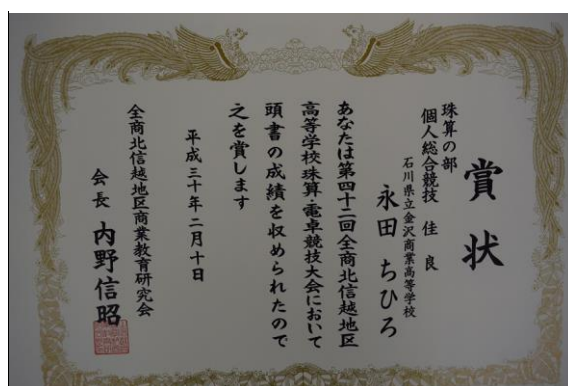 賞状
珠算の部
個人総合競技 佳良
石川県立金沢商業高等学校
永田 ちひろ
あなたは第四十二回全商北信越地区
高等学校珠算・電卓競技大会において
頭書の成績を収められたので
之を賞します
平成三十年二月十日
全商北信越地区商業教育研究会
会長 内野信昭